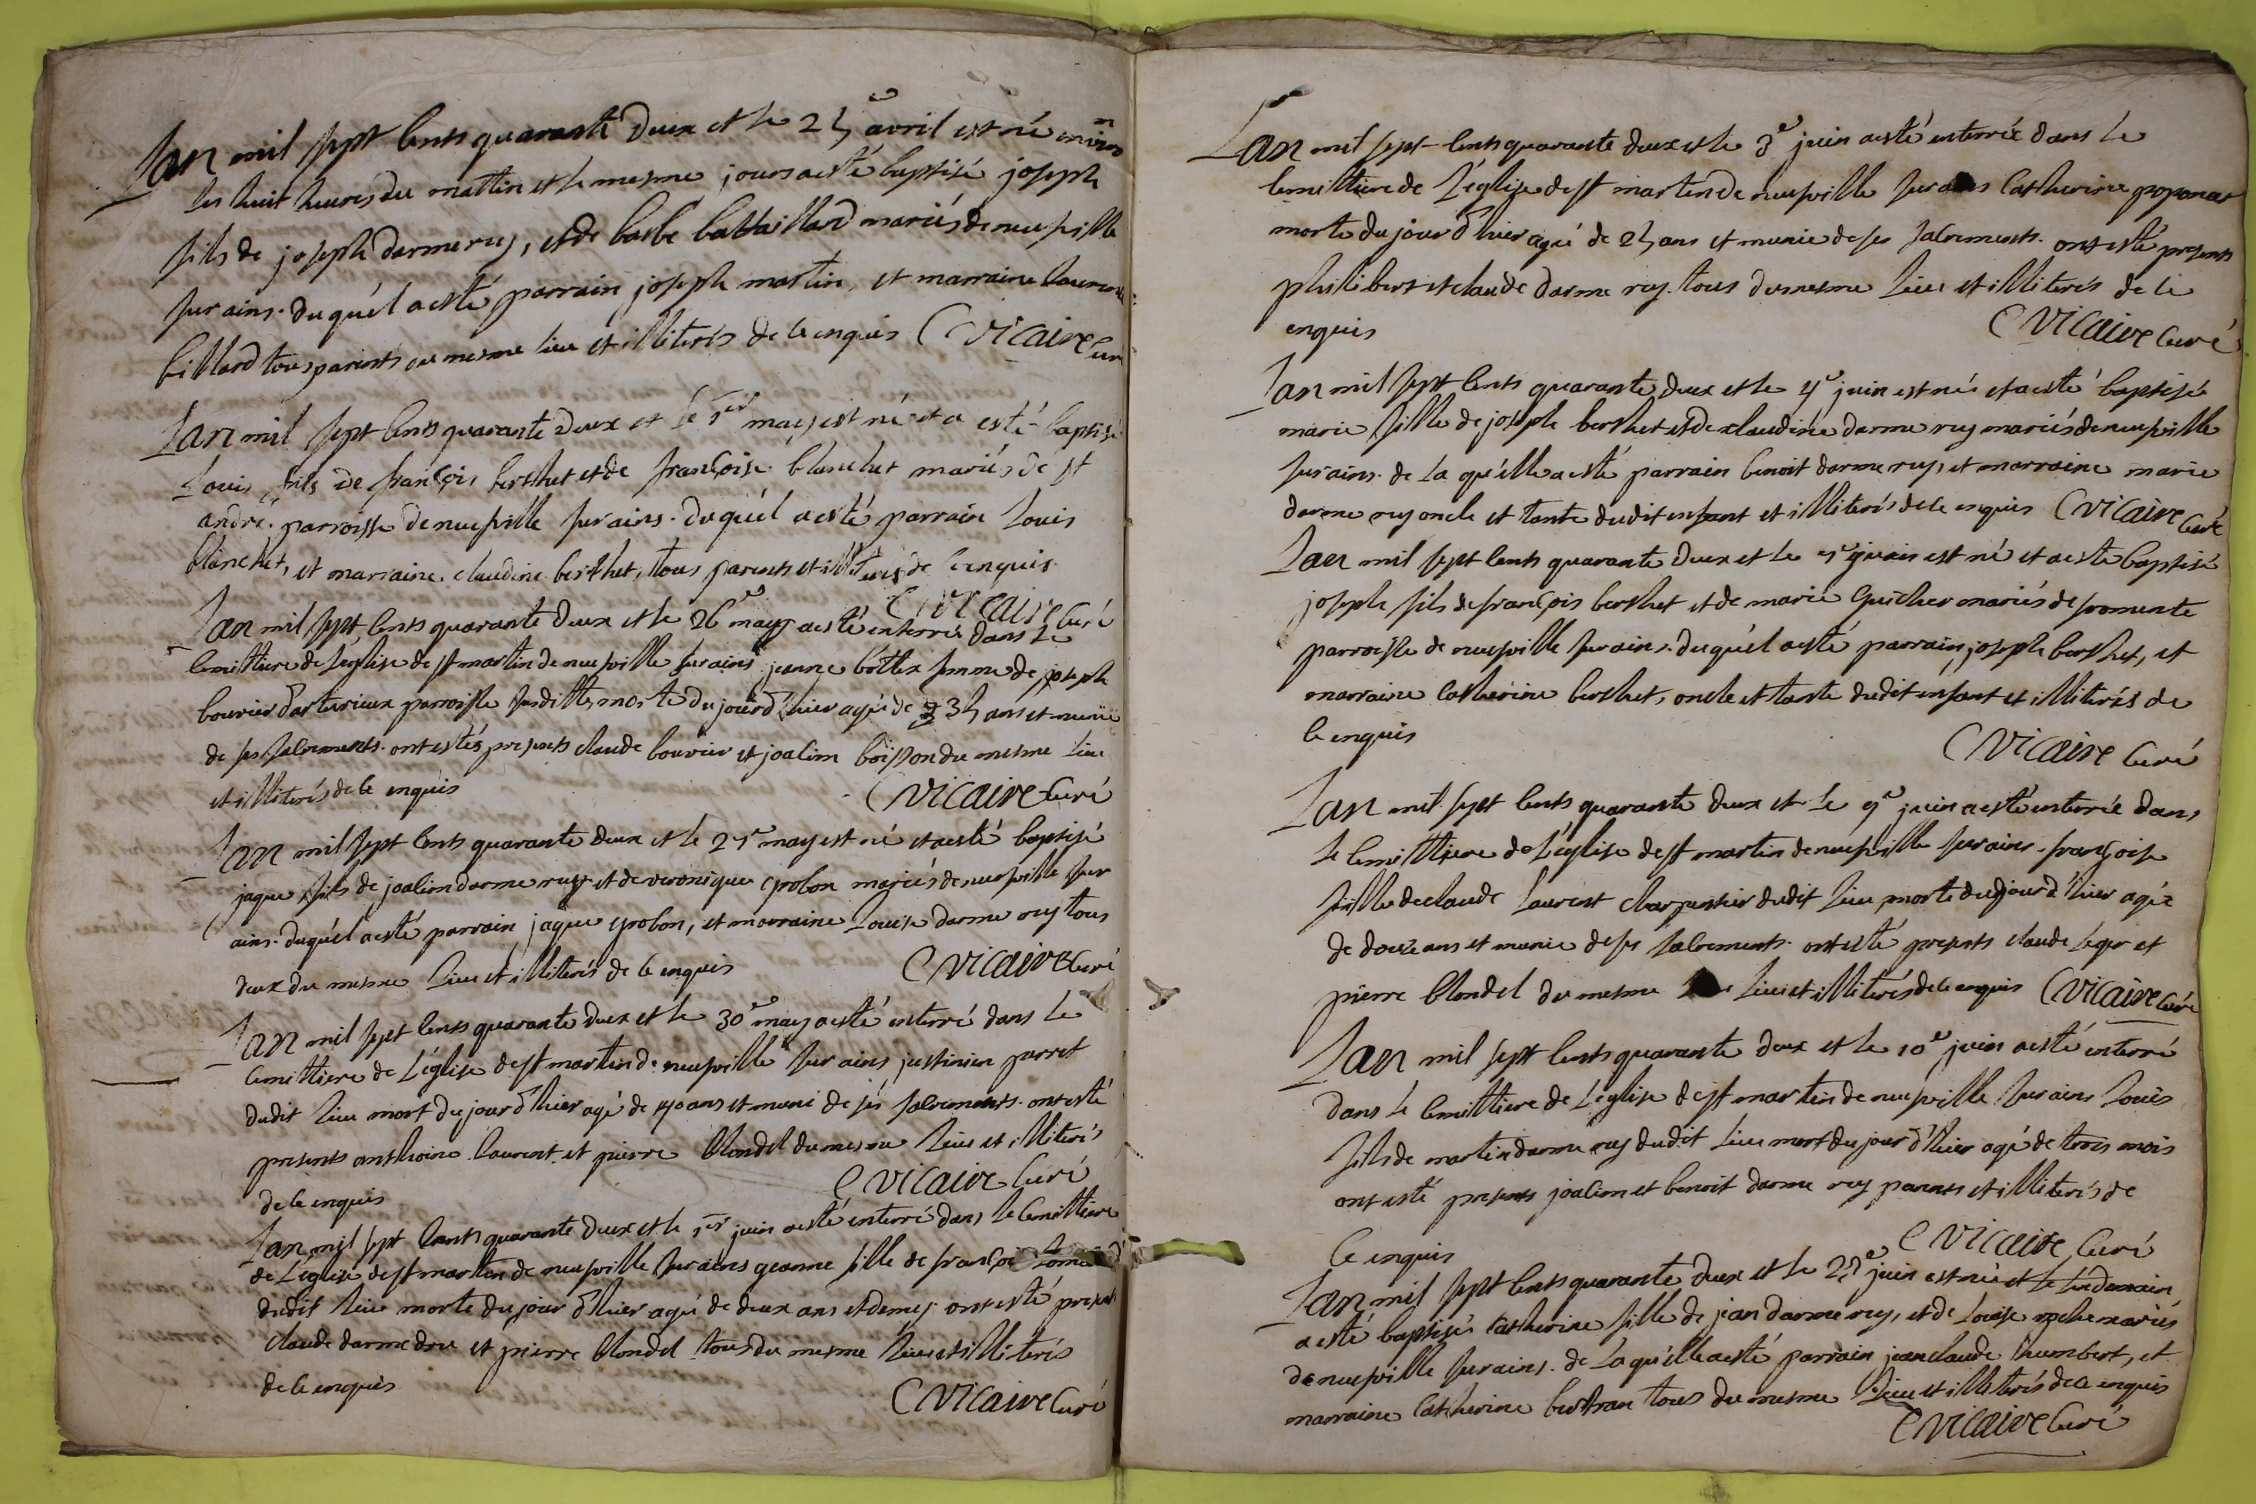 Lan mil sept cents quarante deux et le 25e avril est né environ
les huit heures du mattin et le mesme jours a esté baptisé joseph
fils de joseph darmerey, et de barbe battaillard mariés de neufville
sur ains. duquél a esté parrain joseph martin, et marraine
billard tous parents du mesme lieu et illiterés de ce enquis C Vicaire Curé
Lan mil sept cents quarante deux et le 1er may est né et a esté baptisé
Louis fils de françois berthet et de françoise blanchet mariés de st
andré. parroisse de neufville sur ains. duquél a esté parrain Louis
blanchet, et marraine claudine berthet, tous parents et illiterés de ce enquis
C Vicaire Curé
Lan mil sept cents quarante deux et le 26e may a esté enterrée dans le
cemittiere de l'église de st martin de neufville sur ains jeanne femme de joseph
bouvier parroisse suditte, morte du jour d'hier agée de 35 ans et munie
de ses sacrements. ont estés presents claude bouvier et joacim boisson du mesme lieu
et illiterés de ce enquis C Vicaire Curé
Lan mil sept cents quarante deux et le 27e may est né et a esté baptisé
jaque fils de joacim darmerey et de veronique mariés de neufville sur
ains. duquél a esté parrain jaque et marraine Louise darme rey tous
deux du mesme lieu et illiterés de ce enquis C Vicaire Curé
Lan mil sept cents quarante deux et le 30e may a esté enterré dans le
cemittiere de L'église de st martin de neufville sur ains justinien perret
dudit lieu mort du jour d'hier agé de 40 ans et muni de sés sacrements. ont esté
presents anthoine Laurent et pierre blondel du mesme lieu et illiterés
de ce enquis C Vicaire Curé
Lan mil sept cents quarante deux et le 1er juin a esté enterré dans le cemittiere
de L'église de st martin de neufville sur ains jeanne fille de
dudit lieu morte du jour d'hier agée de deux ans et demy. ont esté presents
claude darmedru et pierre blondel tous du mesme lieu et illiterés
de ce enquis C Vicaire Curé
Lan mil sept cents quarante deux et le 3e juin a esté enterrée dans le
cemittiere de L'église de st martin de neufville sur ains Catherine
morte du jour d'hier agée de 25 ans et munie de ses sacrements. ont esté presents
philibert et claude darme rey. tous du mesme lieu et illiterés de ce
enquis C Vicaire Curé
Lan mil sept cents quarante deux et le 4e juin est née et a esté baptisée
marie fille de joseph berthet et de claudine darme rey mariés de neufville
sur ains. de la quélle a esté parrain benoit darme rey, et marraine marie
darme rey oncle et tante dudit enfant et illiterés de ce enquis C Vicaire Curé
Lan mil sept cents quarante deux et le 7e juin est né et a esté baptisé
joseph fils de françois berthet et de marie Guicher mariés de fromente
parroisse de neufville sur ains. duquél a esté parrain joseph berthet, et
marraine Catherine berthet, oncle et tante dudit enfant et illiterés de
ce enquis C Vicaire Curé
Lan mil sept cents quarante deux et le 9e juin a esté enterrée dans
le cemittiere de L'église de st martin de neufville sur ains. françoise
fille de claude Laurent charpentier dudit lieu morte du jour d'hier agée
de douze ans et munie de ses sacrements. ont esté presents claude Léger et
pierre blondel du mesme lieu et illiterés de ce enquis C Vicaire Curé
Lan mil sept cents quarante deux et le 10e juin a esté enterré
dans le cemittiere de L'église de st martin de neufville sur ains Louis
fils de martin darme rey dudit lieu mort du jour d'hier agé de trois mois
ont esté presents joacim et benoit darme rey parents et illiterés de
ce enquis C Vicaire Curé
Lan mil sept cents quarante deux et le 27e juin est née et le lendemain
a esté baptisée Catherine fille de jean darme rey, et de Louise mariés
de neufville sur ains. de la quélle a esté parrain jean claude humbert, et
marraine Catherine bertran tous du mesme lieu et illiterés de ce enquis
C Vicaire Curé